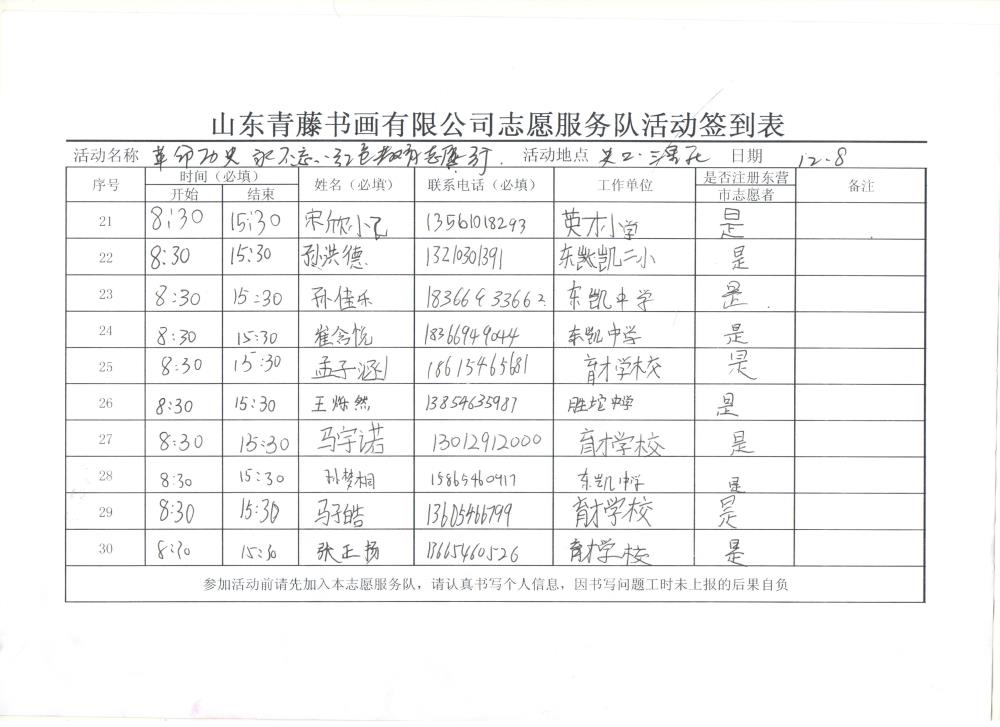 山东青藤书画有限公司志愿服务队活动签到表
活动名称 革命历史 永不忘 红色教育志愿行 活动地点 日期 12.8
序号 时间（必填） 姓名（必填） 联系电话（必填） 工作单位 是否注册东营市志愿者 备注
开始 结束
21 8:30 15:30 宋欣 13561018293 英才小学 是
22 8:30 15:30 孙洪德 13210301391 东凯二小 是
23 8:30 15:30 孙佳乐 18366933662 东凯中学 是
24 8:30 15:30 崔含悦 18366949044 东凯中学 是
25 8:30 15:30 孟子涵 18615465681 育才学校 是
26 8:30 15:30 王烁然 13854635987 胜坨中学 是
27 8:30 15:30 马宇诺 13012912000 育才学校 是
28 8:30 15:30 孙梦桐 15865460917 东凯中学 是
29 8:30 15:30 马子皓 13605466799 育才学校 是
30 8:30 15:30 张正扬 18665460526 育才学校 是
参加活动前请先加入本志愿服务队，请认真书写个人信息，因书写问题工时未上报的后果自负